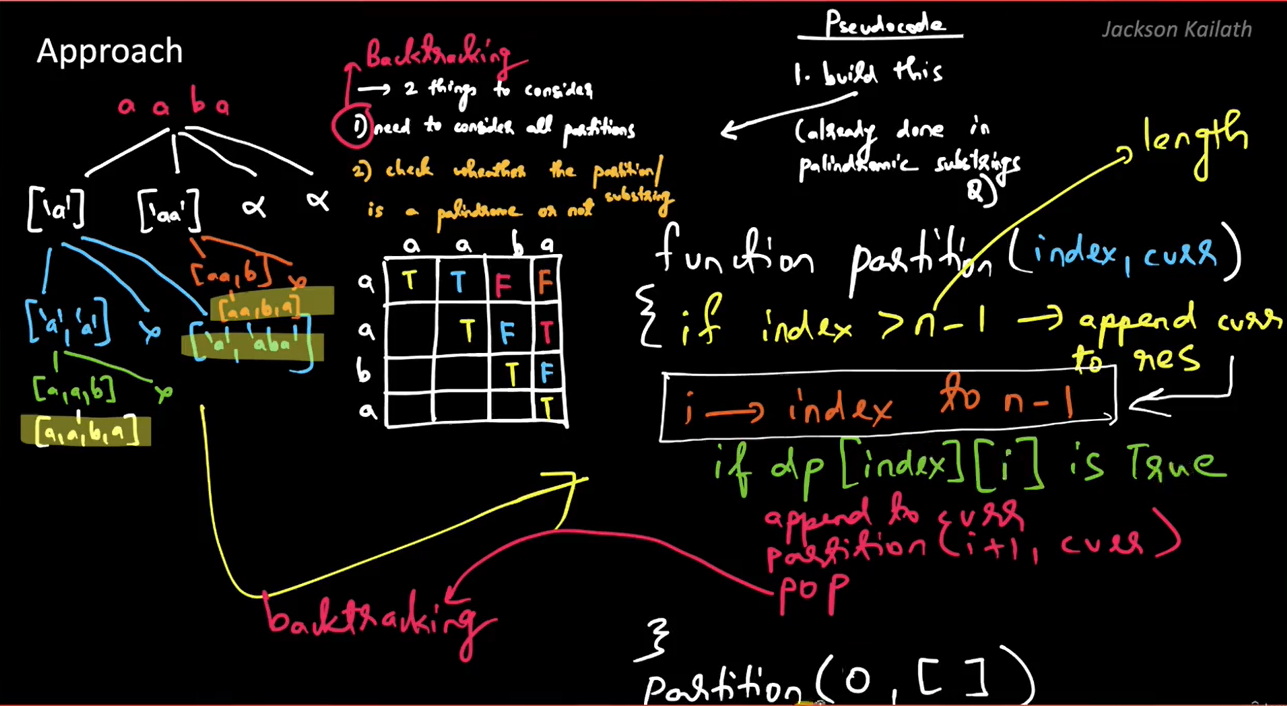 Approach
a a b a
['a'] ['aa'] ∝ ∝
[aa, b] ×
[aa, b, a]
['a', 'a'] × ['a', 'aba']
[a, a, b] ×
[a, a, b, a]
Backtracking
→ 2 things to consider
1) need to consider all partitions
2) check wheather the partition/
substring
is a palindrome or not
a a b a
a T T F F
a T F T
b T F
a T
backtracking
Pseudocode
Jackson Kailath
1. build this
(already done in
palindromic substrings
Q)
length
function partition(index, curr)
{ if index > n-1 → append curr
to res
i → index to n-1
if dp[index][i] is True
append to curr
partition(i+1, curr)
pop
}
partition(0, [ ])